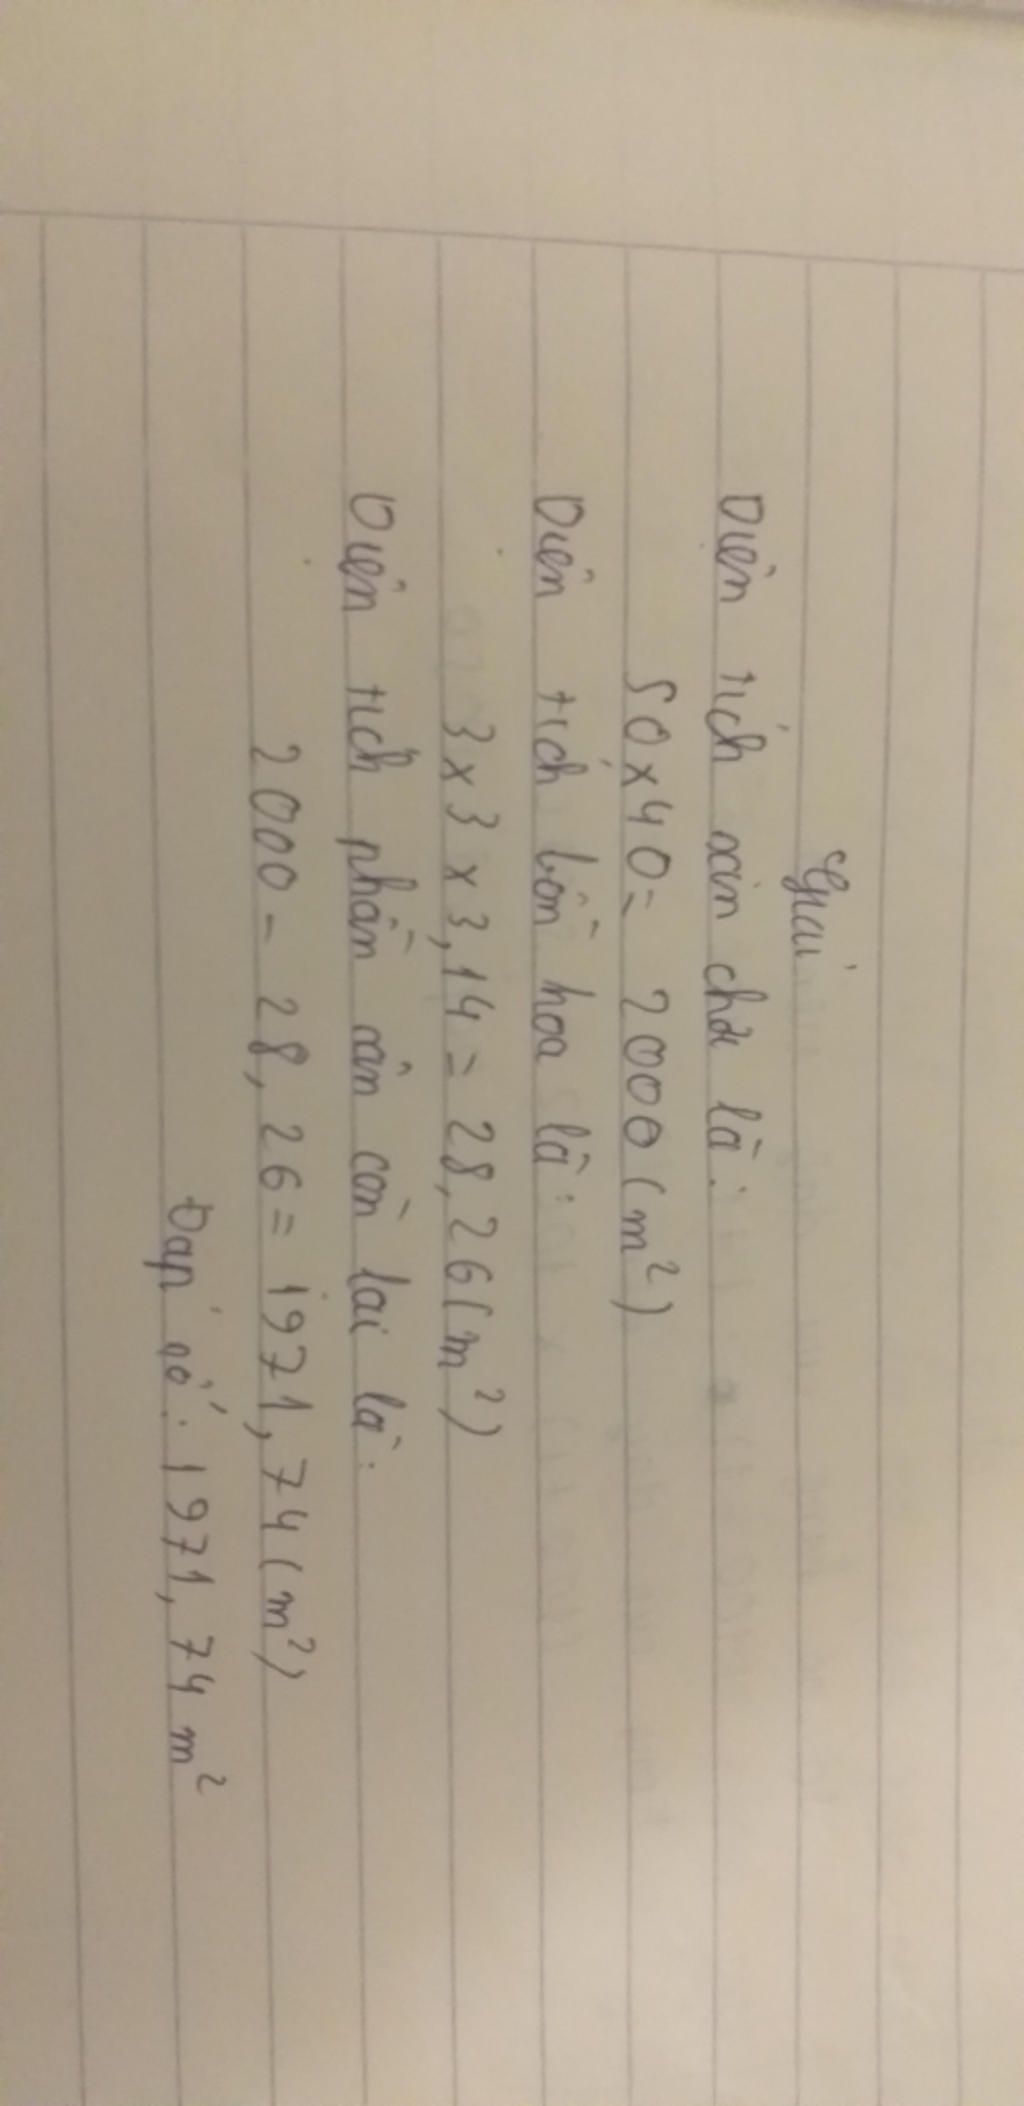 Giải
Diện tích sân chơi là:
50 x 40 = 2000 (m²)
Diện tích bồn hoa là:
3 x 3 x 3,14 = 28,26 (m²)
Diện tích phần sân còn lại là:
2000 - 28,26 = 1971,74 (m²)
Đáp số: 1971,74 m²